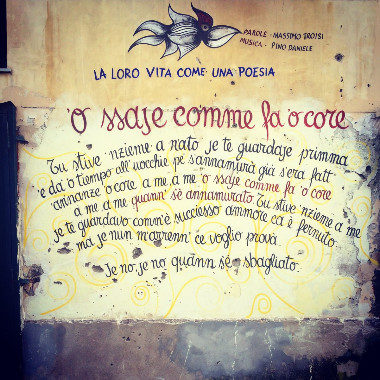 PAROLE - MASSIMO TROISI
MUSICA - PINO DANIELE
LA LORO VITA COME UNA POESIA
'O ssaje comme fa 'o core
Tu stive 'nzieme a nato je te guardaje primma
'e da' 'o tiempo all'uocchie pe s'annamurà già s'era fatt'
annanze 'o core a me, a me 'o ssaje comme fa 'o core
a me a me quann' s'è annamurato. Tu stive 'nzieme a me
je te guardavo comm'è successo ammore ca è fernuto
ma je nun m'arrenn' ce voglio prova.
Je no, je no quann sé sbagliato.